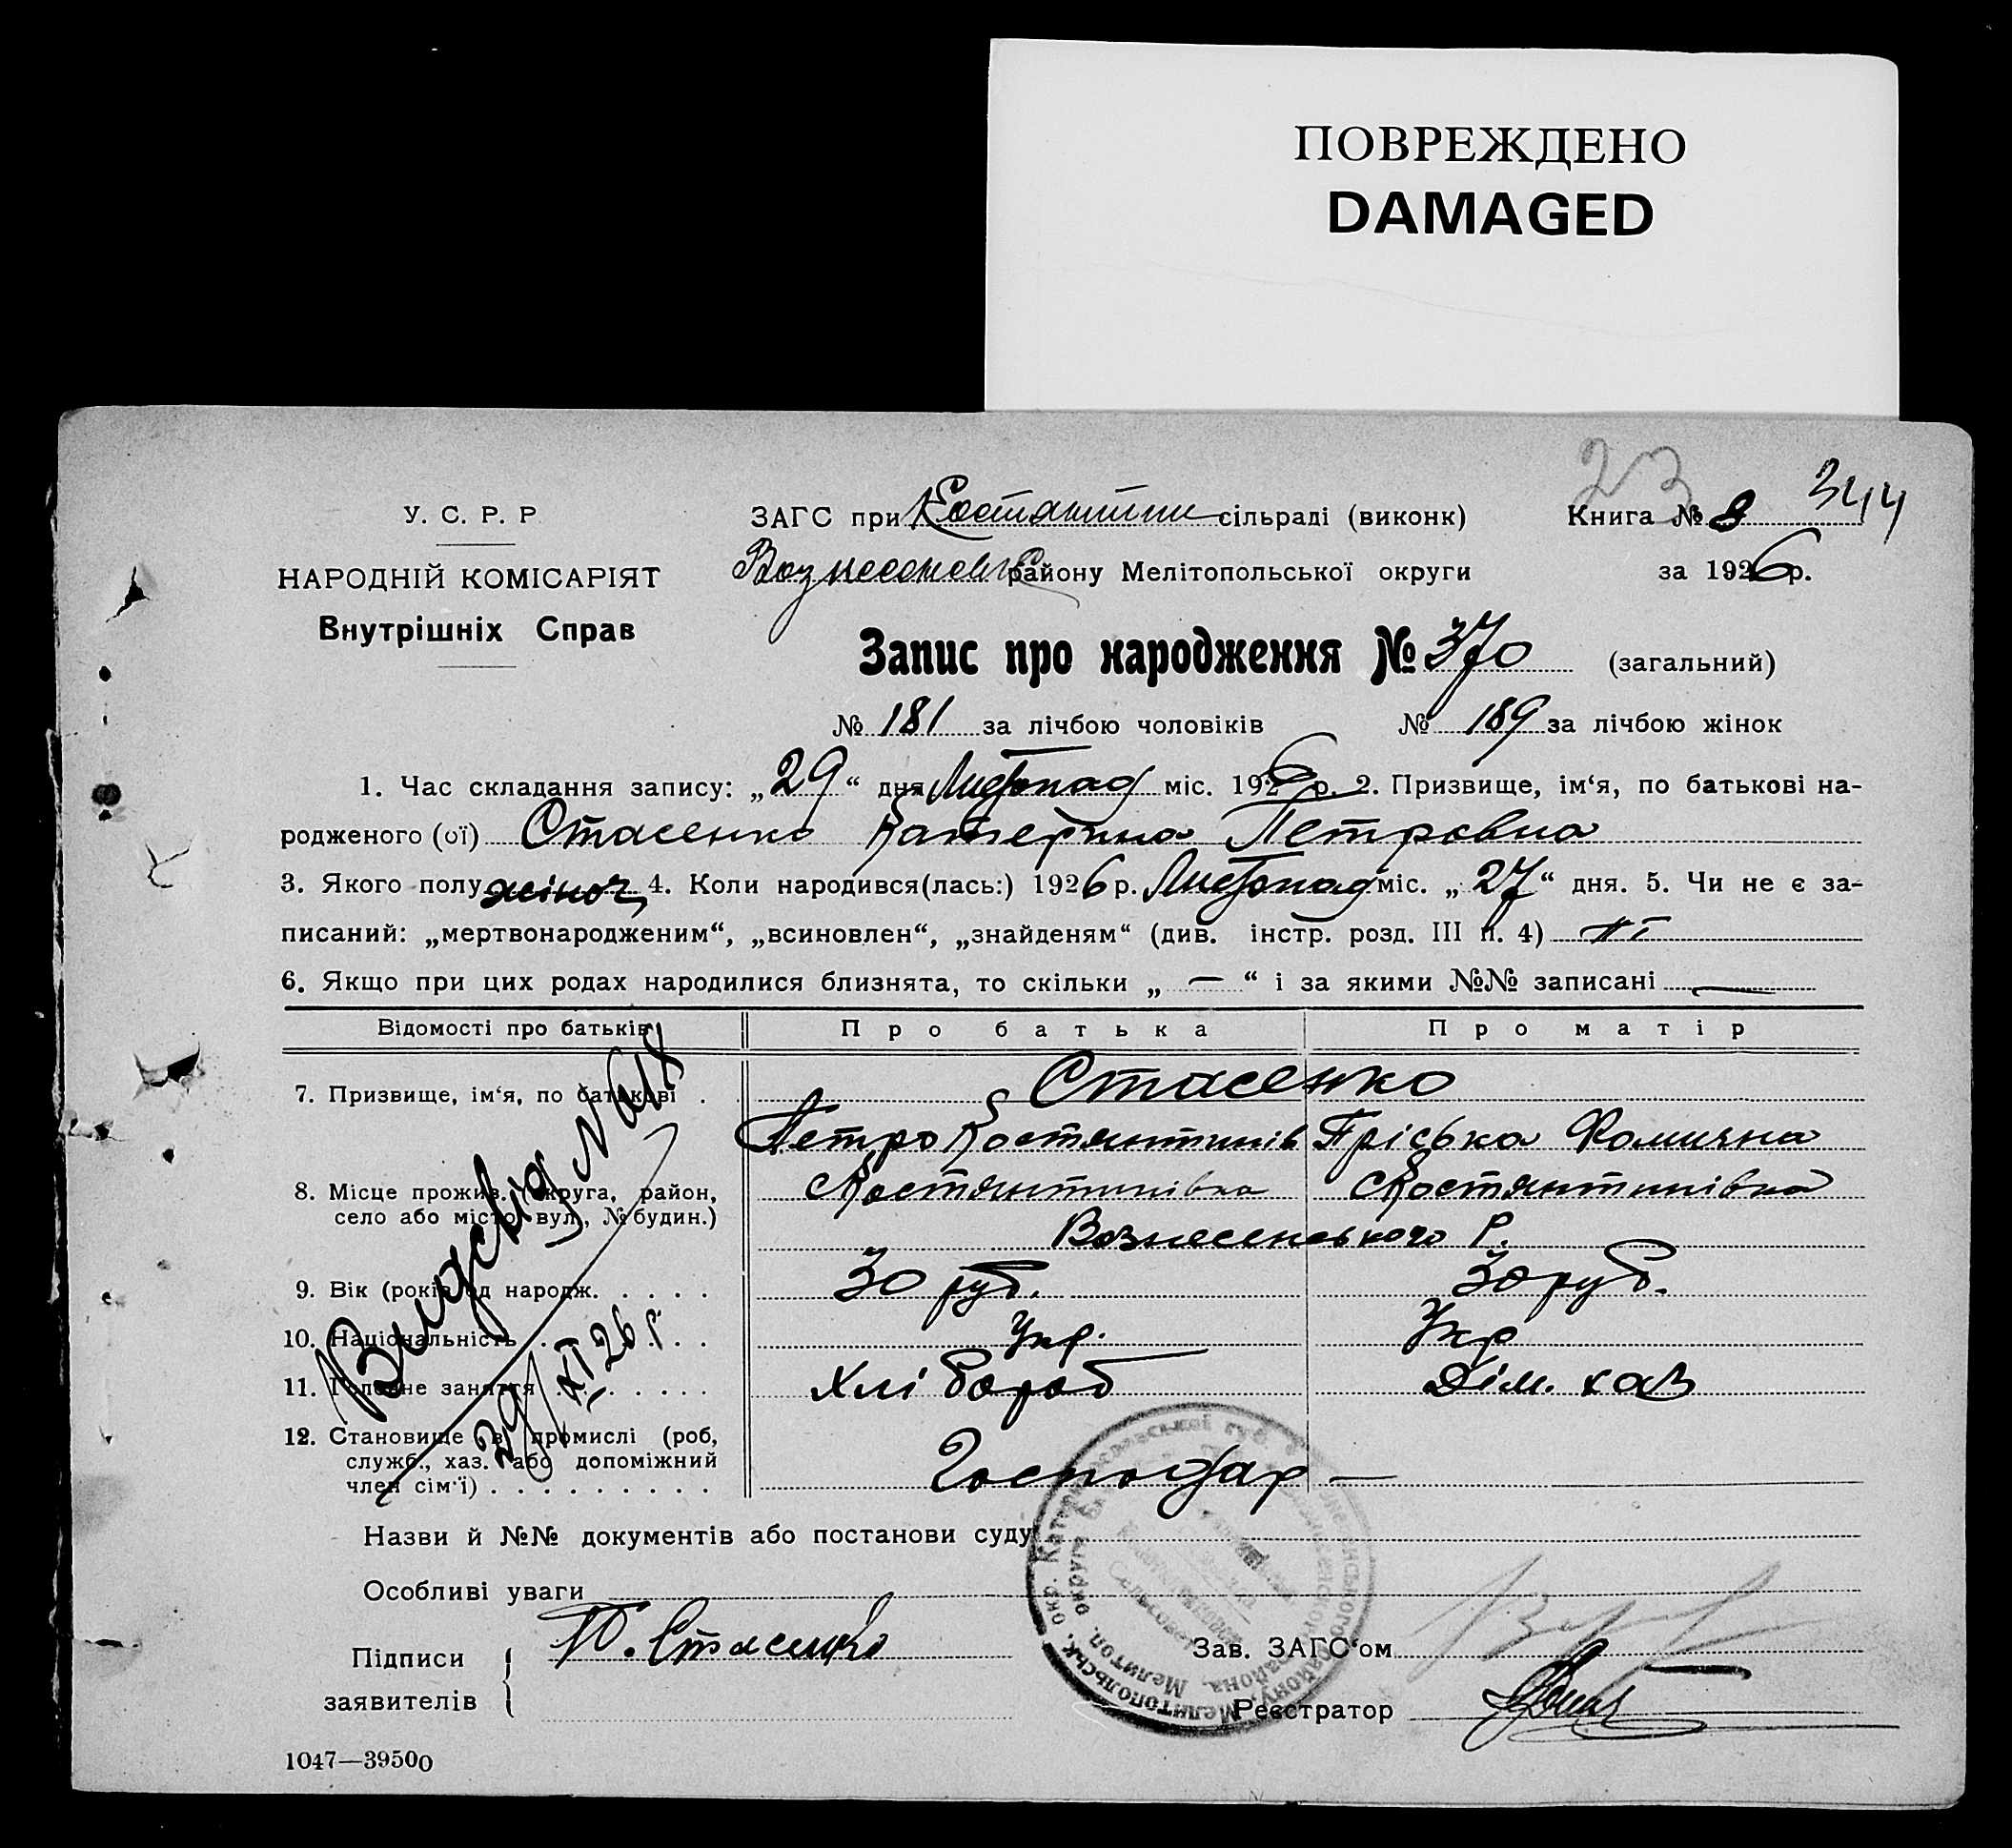 ПОВРЕЖДЕНО
DAMAGED
23
344
У. С. Р. Р
НАРОДНІЙ КОМІСАРІЯТ
Внутрішніх Справ
ЗАГС при Костянтин сільраді (виконк)
Книга № 8
Вознесенськ району Мелітопольської округи
за 1926 р.
Запис про народження № 370 (загальний)
№ 181 за лічбою чоловіків № 189 за лічбою жінок
1. Час складання запису: „29“ дня Листопад міс. 1926 р. 2. Призвище, ім‘я, по батькові на-
родженого (ої) Стасенко Катерина Петровна
3. Якого полу жіноч 4. Коли народився(лась:) 1926 р. Листопад міс. „27“ дня. 5. Чи не є за-
писаний: „мертвонародженим“, „всиновлен“, „знайденям“ (див. інстр. розд. III п. 4) ні
6. Якщо при цих родах народилися близнята, то скільки „ — “ і за якими №№ записані —
Відомості про батьків Про батька Про матір
7. Призвище, ім‘я, по батькові . Стасенко
Петро Костянтинів Пріська Фомична
8. Місце прожив. (округа, район, Костянтинівка Костянтинівка
село або місто, вул., № будин.)
Вознесенського р.
9. Вік (років од народж. . . . . 30 руб. 30 руб.
10. Національність . . . . . . Укр. Укр
11. Головне заняття . . . . . . . Хлібороб Дім. хаз
12. Становище в промислі (роб, служб., хаз. або допоміжний член сім‘ї) . . . . . . . . . Господар —
29/XI 26 р.
Назви й №№ документів або постанови суду
Особливі уваги
Підписи
заявителів
П. Стасенко
Зав. ЗАГС‘ом
Реєстратор
1047—39500